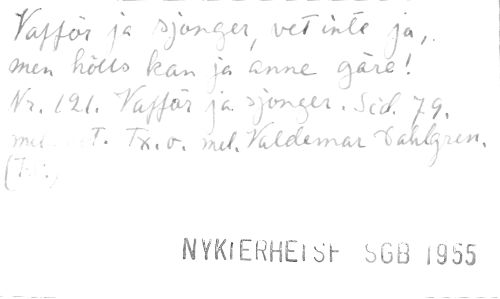 Vafför ja sjonger, vet inte ja,
men hölls kan ja anne gäre!
Nr. 121. Vafför ja sjonger. Sid. 79.
Tx. o. mel. Valdemar Dahlgren.
NYKTERHETSF SGB 1955